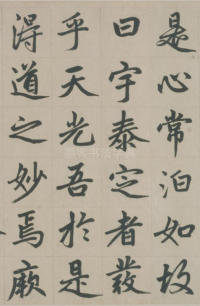 是心常泊如故
曰宇泰定者發
乎天光吾於是
得道之妙焉厥